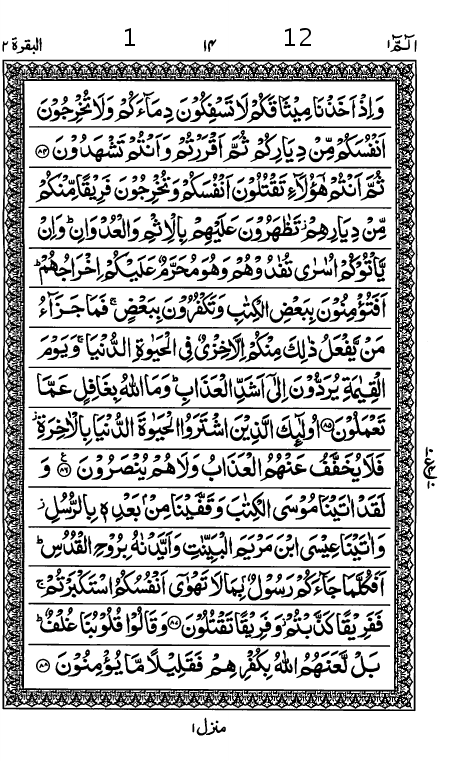 الٓمّٓ ١ ١٤ البقرة ٢
1 12
وَاِذْ اَخَذْنَا مِيْثَاقَكُمْ لَا تَسْفِكُوْنَ دِمَآءَكُمْ وَلَا تُخْرِجُوْنَ
اَنْفُسَكُمْ مِّنْ دِيَارِكُمْ ثُمَّ اَقْرَرْتُمْ وَاَنْتُمْ تَشْهَدُوْنَ ﴿۸۴﴾
ثُمَّ اَنْتُمْ هٰٓؤُلَآءِ تَقْتُلُوْنَ اَنْفُسَكُمْ وَتُخْرِجُوْنَ فَرِيْقًا مِّنْكُمْ
مِّنْ دِيَارِهِمْ ز تَظٰهَرُوْنَ عَلَيْهِمْ بِالْاِثْمِ وَالْعُدْوَانِ ؕ وَاِنْ
يَّاْتُوْكُمْ اُسٰرٰى تُفٰدُوْهُمْ وَهُوَ مُحَرَّمٌ عَلَيْكُمْ اِخْرَاجُهُمْ ؕ
اَفَتُؤْمِنُوْنَ بِبَعْضِ الْكِتٰبِ وَتَكْفُرُوْنَ بِبَعْضٍ ۚ فَمَا جَزَآءُ
مَنْ يَّفْعَلُ ذٰلِكَ مِنْكُمْ اِلَّا خِزْىٌ فِى الْحَيٰوةِ الدُّنْيَا ۚ وَيَوْمَ
الْقِيٰمَةِ يُرَدُّوْنَ اِلٰٓى اَشَدِّ الْعَذَابِ ؕ وَمَا اللّٰهُ بِغَافِلٍ عَمَّا
تَعْمَلُوْنَ ﴿۸۵﴾ اُولٰٓئِكَ الَّذِيْنَ اشْتَرَوُا الْحَيٰوةَ الدُّنْيَا بِالْاٰخِرَةِ ز
فَلَا يُخَفَّفُ عَنْهُمُ الْعَذَابُ وَلَا هُمْ يُنْصَرُوْنَ ﴿۸۶﴾ ع وَ
لَقَدْ اٰتَيْنَا مُوْسَى الْكِتٰبَ وَقَفَّيْنَا مِنْۢ بَعْدِهٖ بِالرُّسُلِ ز
وَاٰتَيْنَا عِيْسَى ابْنَ مَرْيَمَ الْبَيِّنٰتِ وَاَيَّدْنٰهُ بِرُوْحِ الْقُدُسِ ؕ
اَفَكُلَّمَا جَآءَكُمْ رَسُوْلٌۢ بِمَا لَا تَهْوٰٓى اَنْفُسُكُمُ اسْتَكْبَرْتُمْ ۚ
فَفَرِيْقًا كَذَّبْتُمْ وَفَرِيْقًا تَقْتُلُوْنَ ﴿۸۷﴾ وَقَالُوْا قُلُوْبُنَا غُلْفٌ ؕ
بَلْ لَّعَنَهُمُ اللّٰهُ بِكُفْرِهِمْ فَقَلِيْلًا مَّا يُؤْمِنُوْنَ ﴿۸۸﴾
منزل ١